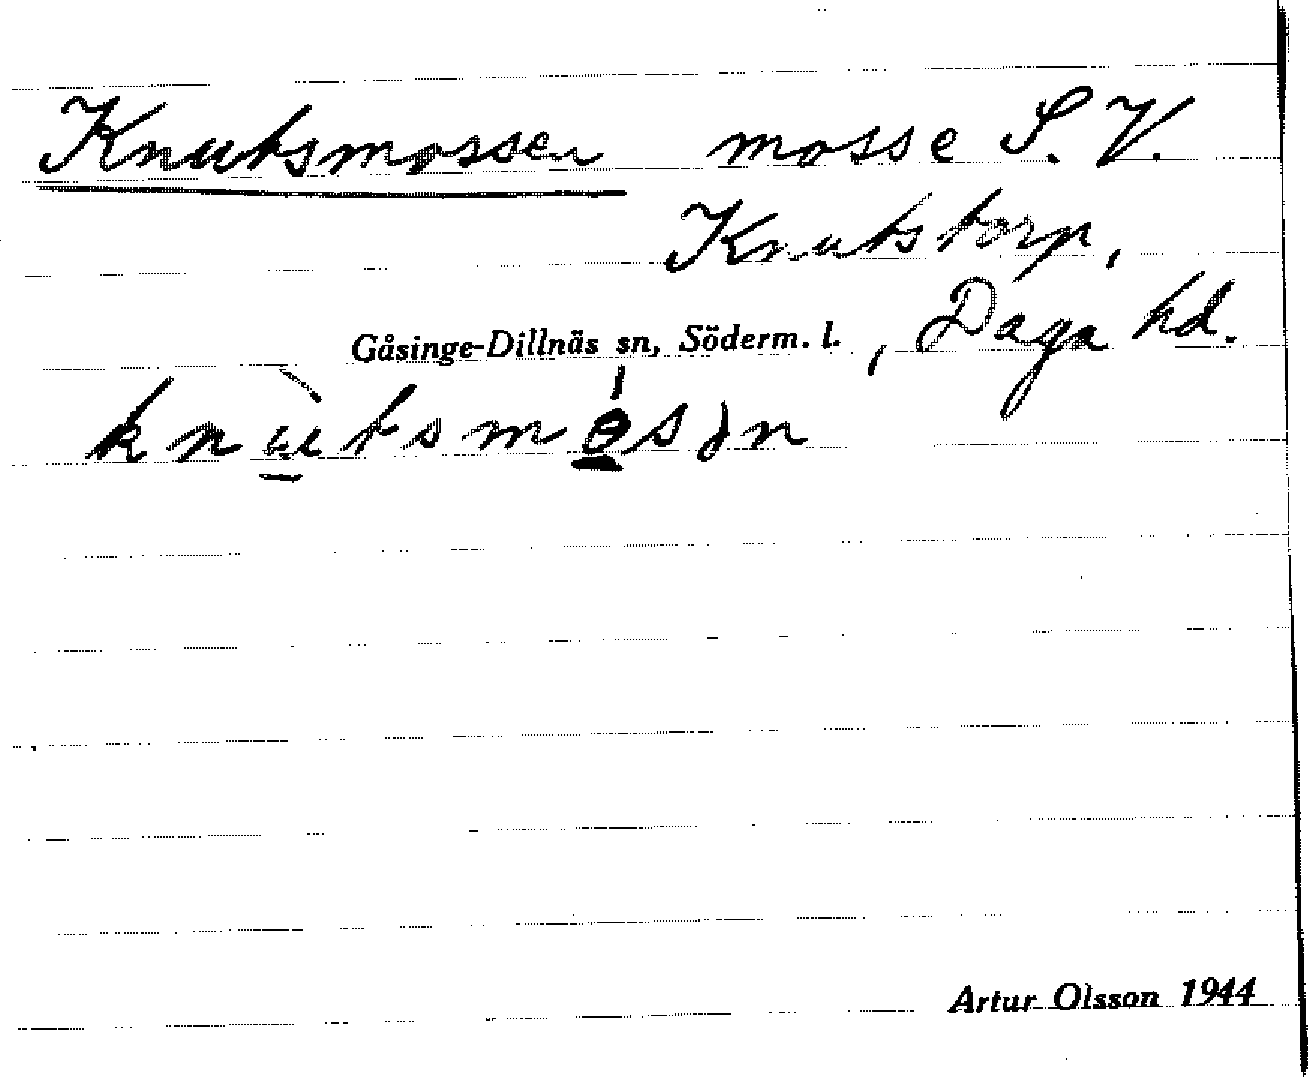 Knutsmossen mosse S. V.
Knutstorp,
Gåsinge-Dillnäs sn, Söderm. l. , Daga hd.
knùtsmósən
Artur Olsson 1944